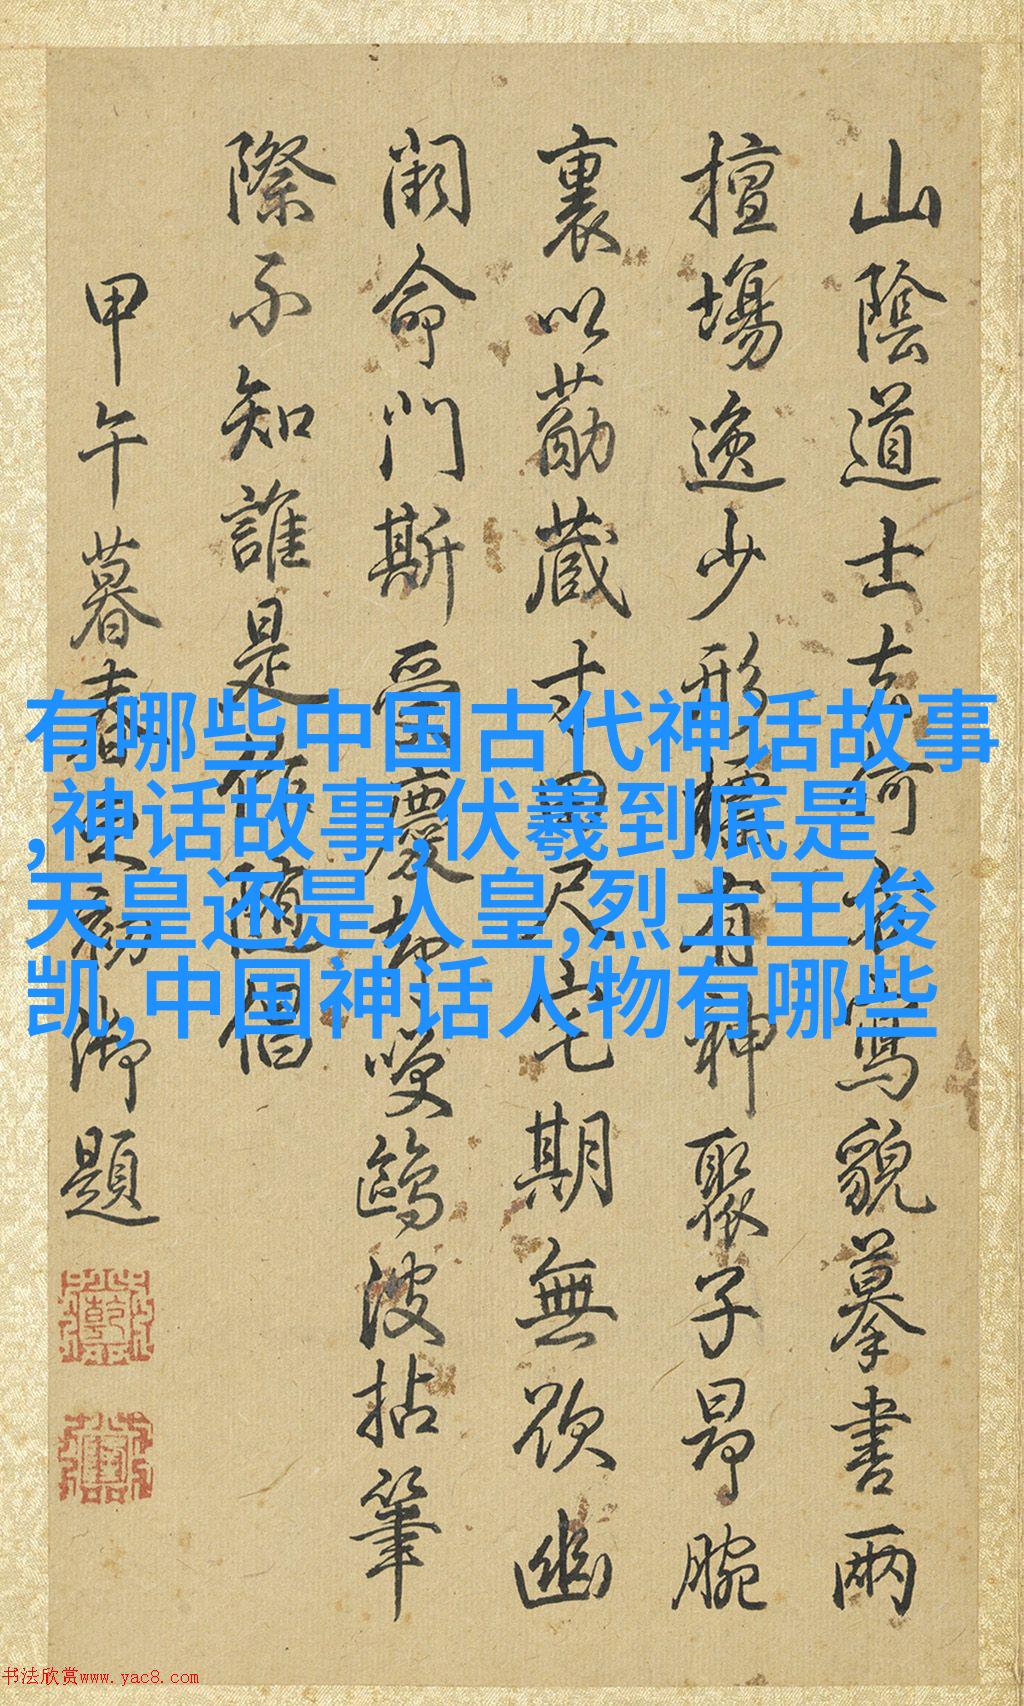 山陰道士去何寫貌摹書兩
擅場逸少形標有神聚子昂腕
裏以勗藏寸田尺宅期無欲幽
闕命門斯受慶却笑鷗波拈筆
際不知誰是作隨倡
甲午暮春御題
有哪些中国古代神话故事
,神话故事,伏羲到底是
天皇还是人皇,烈士王俊
凯,中国神话人物有哪些
书法欣赏www.yac8.com